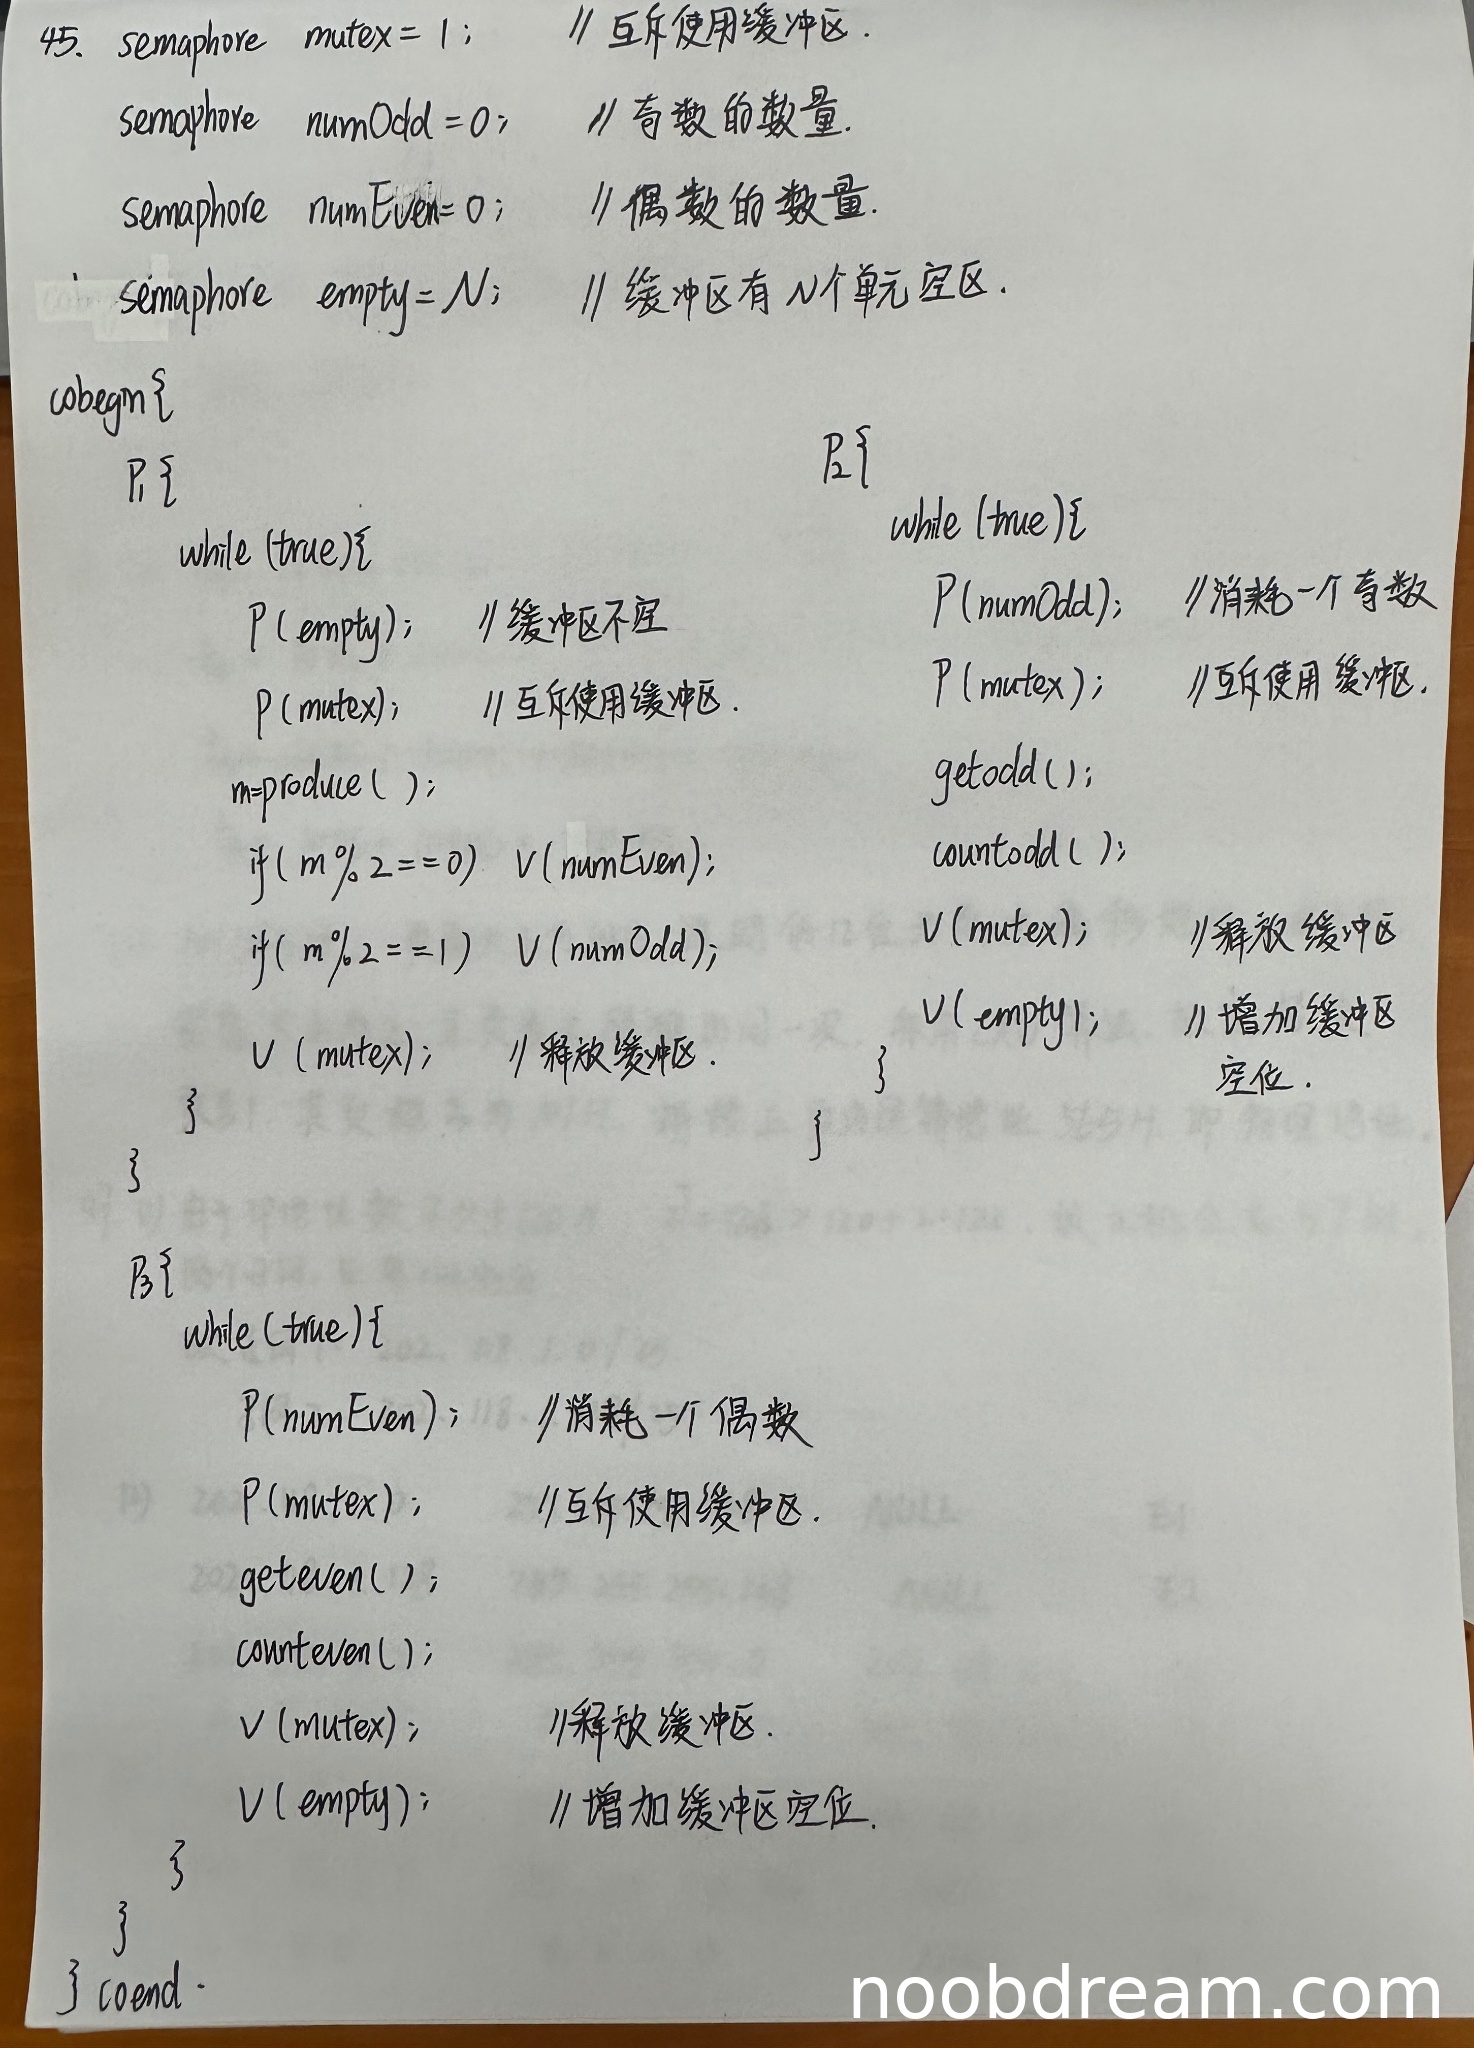 45. semaphore mutex = 1; // 互斥使用缓冲区.
semaphore numOdd = 0; // 奇数的数量.
semaphore numEven = 0; // 偶数的数量.
semaphore empty = N; // 缓冲区有N个单元空区.
cobegin {
P1 {
while (true) {
P(empty); // 缓冲区不空
P(mutex); // 互斥使用缓冲区.
m=produce( );
if( m % 2 == 0) V(numEven);
if( m % 2 == 1) V(numOdd);
V (mutex); // 释放缓冲区.
}
}
P2 {
while (true) {
P(numOdd); // 消耗一个奇数
P(mutex); // 互斥使用缓冲区.
getodd( );
countodd( );
V(mutex); // 释放缓冲区
V(empty); // 增加缓冲区
空位.
}
}
P3 {
while (true) {
P(numEven); // 消耗一个偶数
P(mutex); // 互斥使用缓冲区.
geteven( );
counteven( );
V(mutex); // 释放缓冲区.
V(empty); // 增加缓冲区空位.
}
}
} coend.
noobdream.com